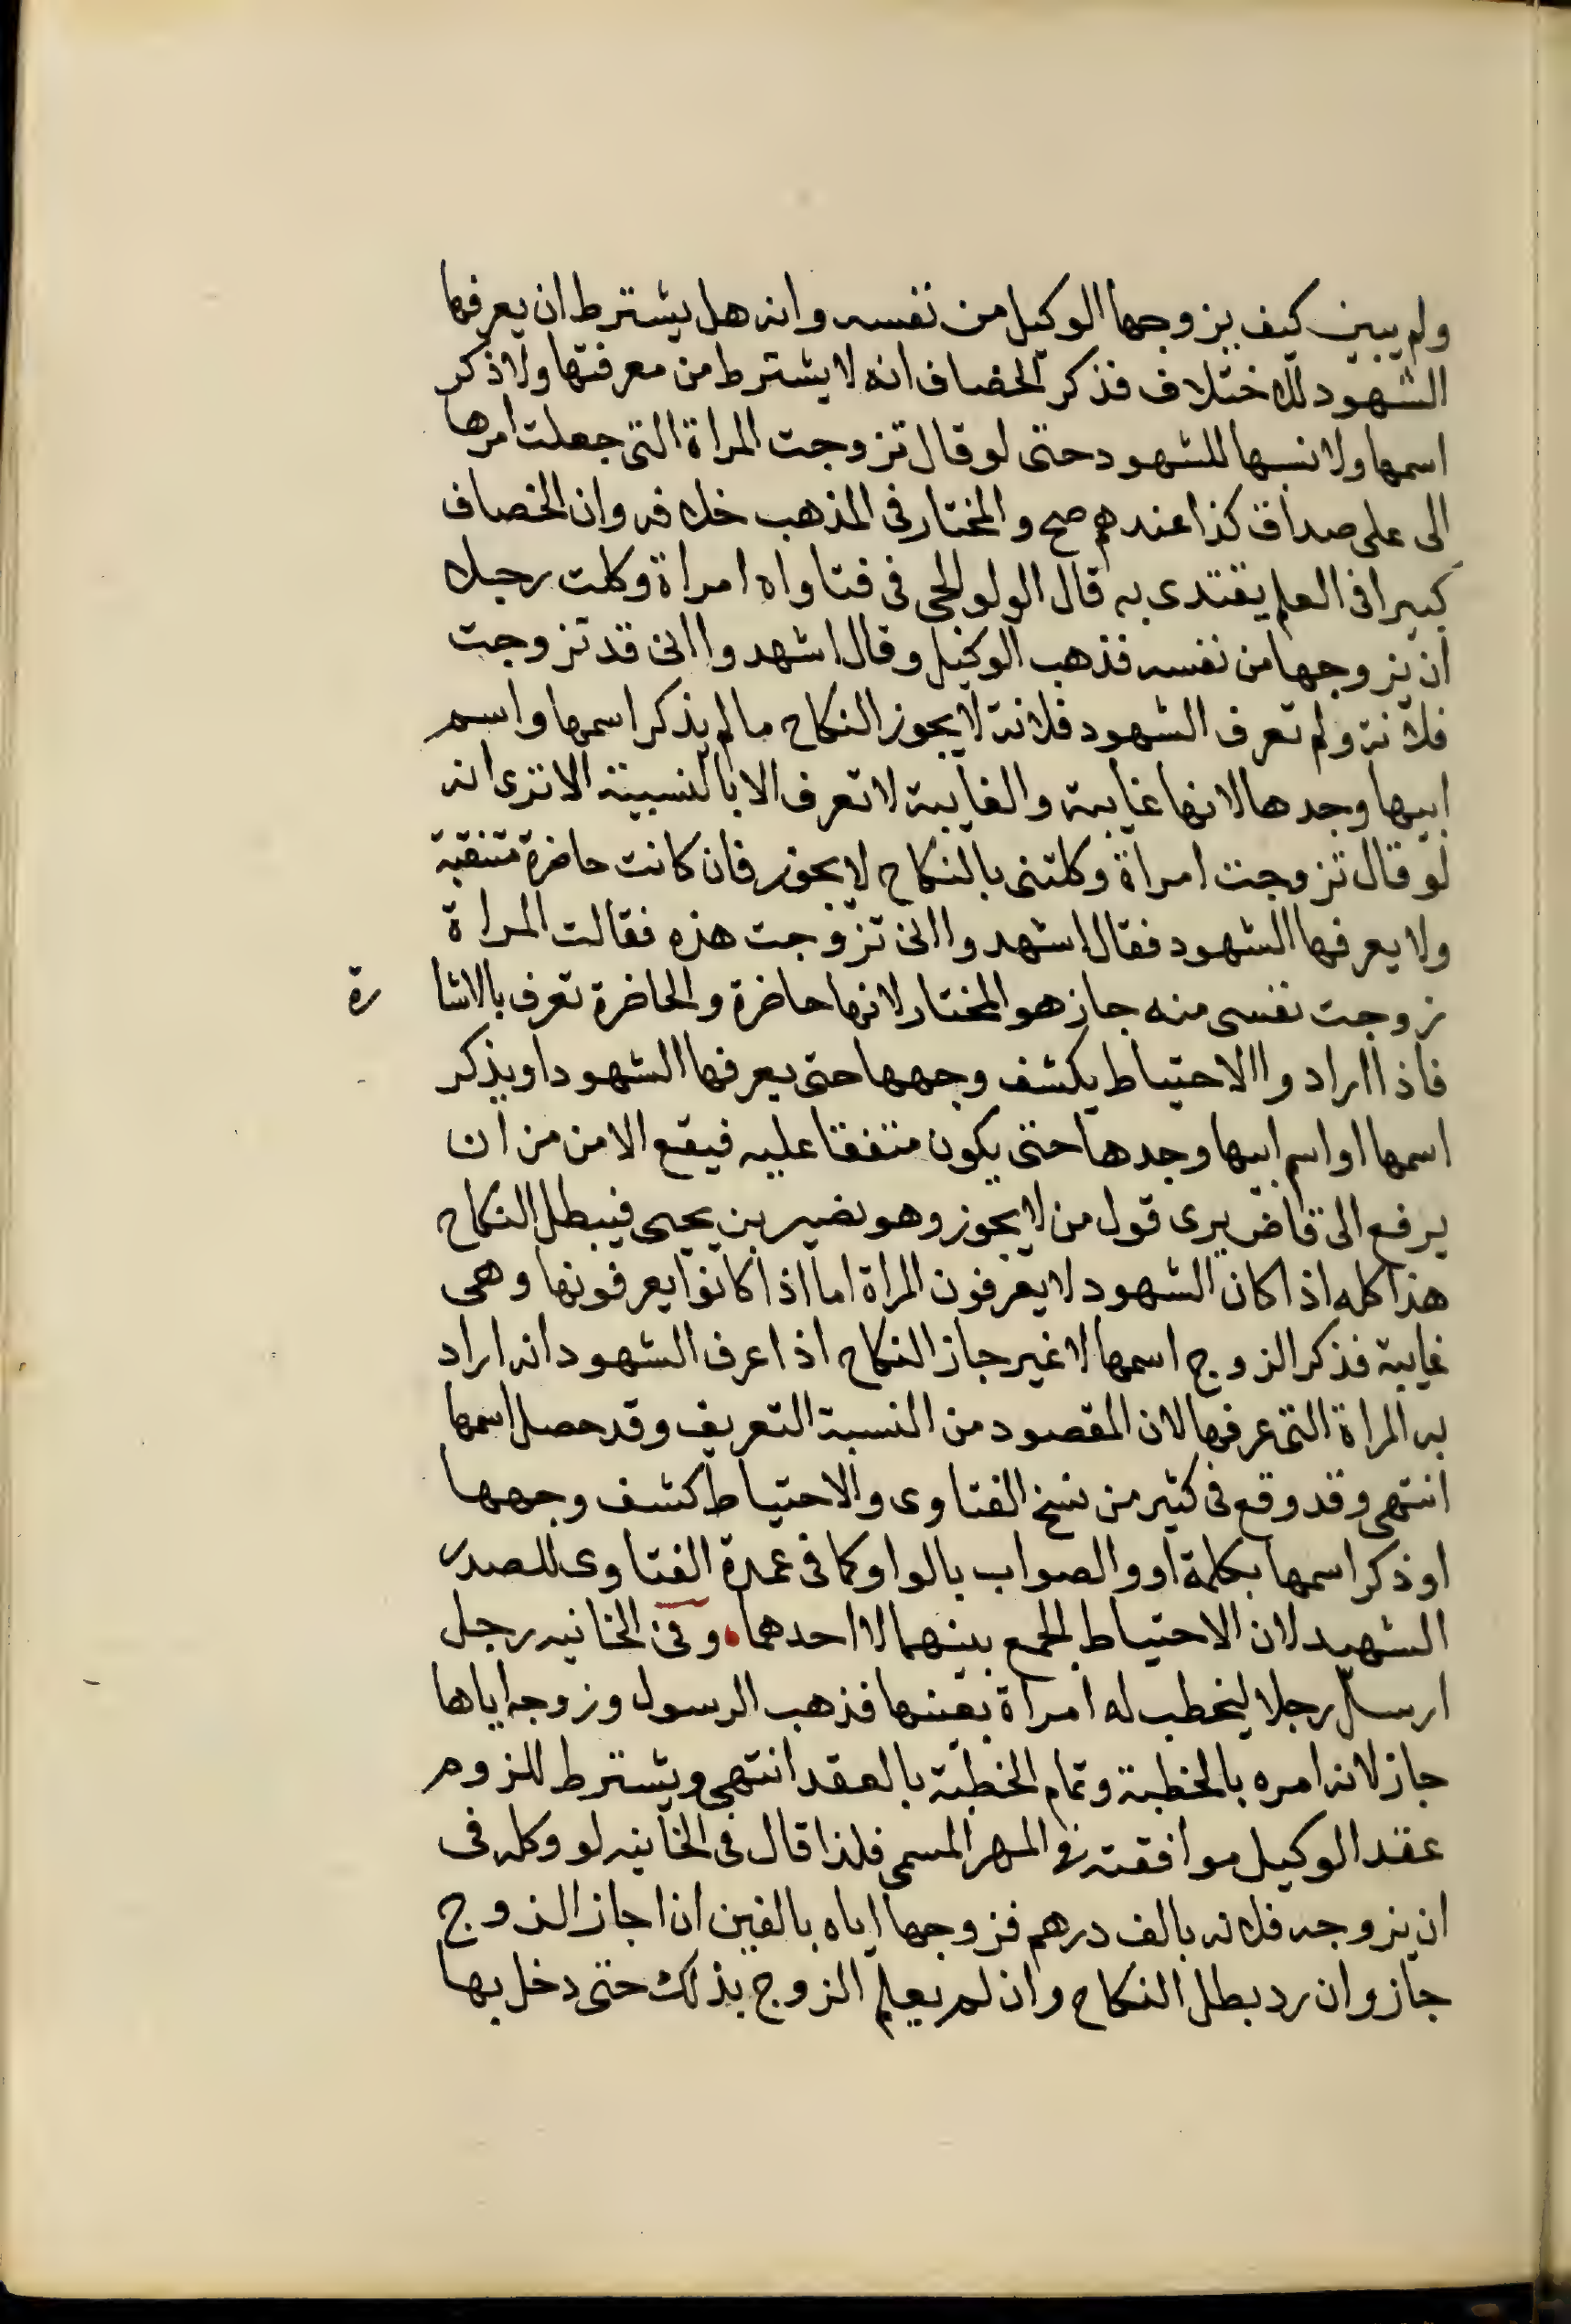 ولم يبين كيف يزوجها الوكيل من نفسه وانه هل يشترط ان يعرفها
الشهود للاختلاف فذكر الخصاف انه لا يشترط من معرفتها ولا ذكر
اسمها ولا نسبها للشهود حتى لو قال تزوجت المراة التى جعلت امرها
الى على صداق كذا عندهم صح والمختار فى المذهب خلافه وان الخصاف
كبيرا فى العلم يقتدى به قال الولوالجى فى فتاواه امراة وكلت رجلا
ان يزوجها من نفسه فذهب الوكيل وقال اشهدوا انى قد تزوجت
فلانة ولم تعرف الشهود فلانة لا يجوز النكاح ما لم يذكر اسمها واسم
ابيها وجدها لانها غايبة والغايبة لا تعرف الا بالنسبة الا ترى انه
لو قال تزوجت امراة وكلتنى بالنكاح لا يجوز فان كانت حاضرة متنقبة
ولا يعرفها الشهود فقال اشهدوا انى تزوجت هذه فقالت المراة
زوجت نفسى منه جاز هو المختار لانها حاضرة والحاضرة تعرف بالاشارة
فاذا ارادوا الاحتياط يكشف وجهها حتى يعرفها الشهود او يذكر
اسمها او اسم ابيها وجدها حتى يكون متفقا عليه فيقع الامن من ان
يرفع الى قاض يرى قول من لا يجوز وهو نصير بن يحيى فيبطل النكاح
هذا كله اذا كان الشهود لا يعرفون المراة اما اذا كانوا يعرفونها وهى
غايبة فذكر الزوج اسمها لا غير جاز النكاح اذا عرف الشهود انه اراد
به المراة التى عرفها لان المقصود من النسبة التعريف وقد حصل اسمها
انتهى وقد وقع فى كثير من نسخ الفتاوى والاحتياط كشف وجهها
او ذكر اسمها بكلمة او والصواب بالواو كما فى عمدة الفتاوى للصدر
الشهيد لان الاحتياط الجمع بينهما لا احدهما وفى الخانيه رجل
ارسل رجلا ليخطب له امراة بعينها فذهب الرسول وزوجه اياها
جاز لانه امره بالخطبة وتمام الخطبة بالعقد انتهى ويشترط للزوم
عقد الوكيل موافقته فى المهر المسمى فلذا قال فى الخانيه لو وكله فى
ان يزوجه فلانه بالف درهم فزوجها اياه بالفين ان اجاز الزوج
جاز وان رد بطل النكاح وان لم يعلم الزوج بذلك حتى دخل بها